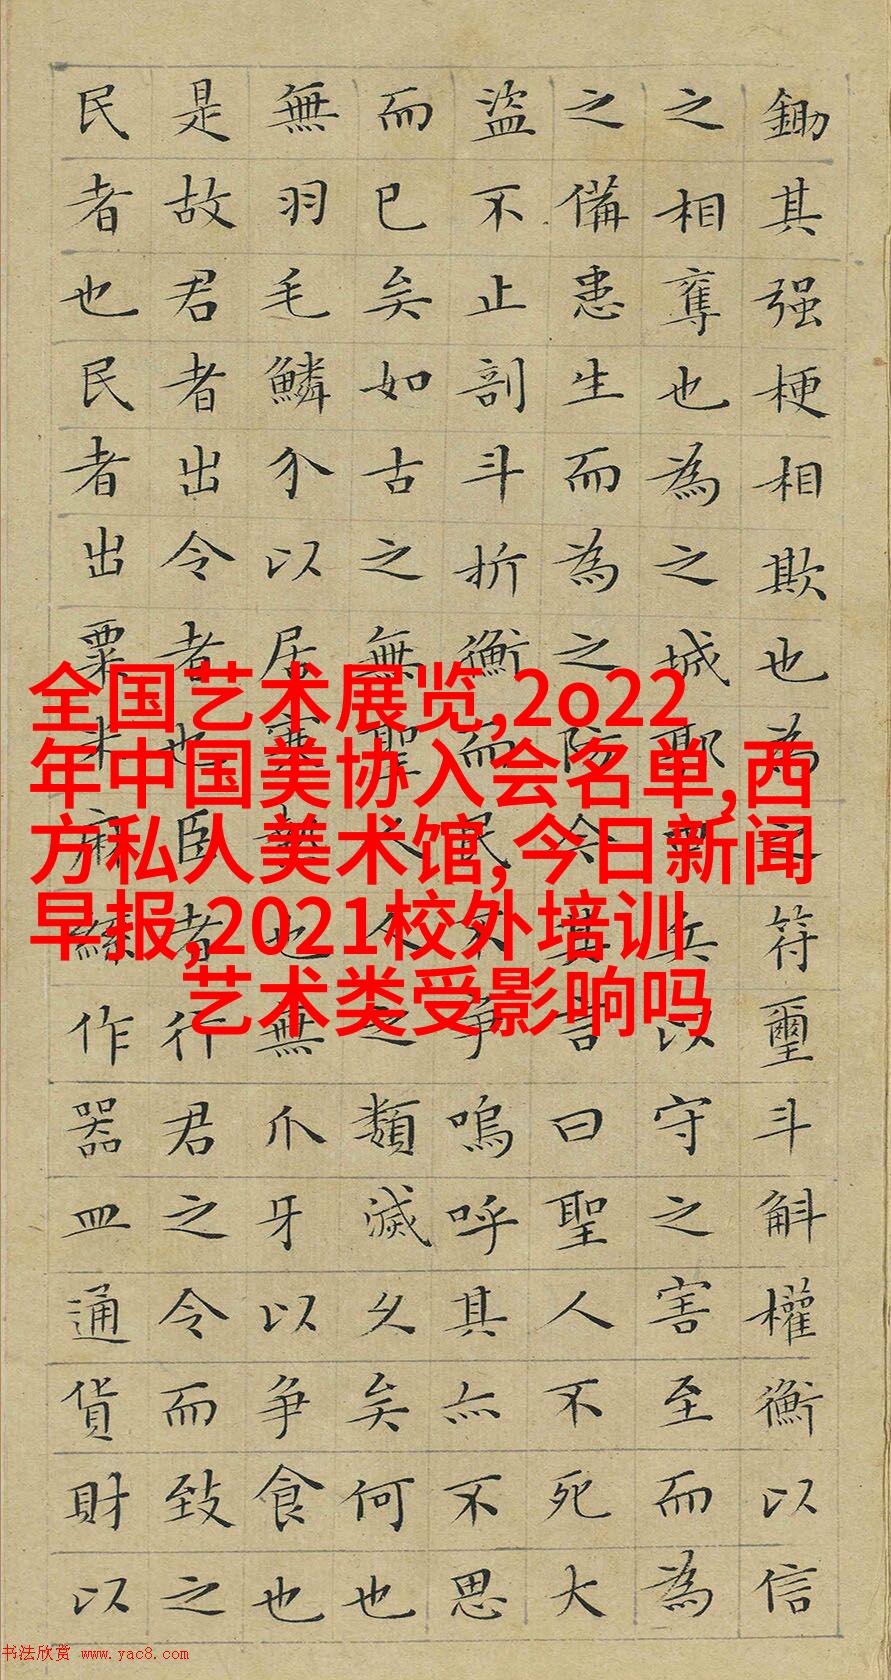 鋤其强梗相欺也為之符璽斗斛權衡以信
之相奪也為之城郭甲兵以守之害至而為
之備患生而為之防今其言曰聖人不死大
盜不止剖斗折衡而民不争嗚呼其亦不思
而已矣如古之無聖人人之類滅久矣何也
無羽毛鱗介以居寒熱也無爪牙以争食也
是故君者出令者也臣者行君之令而致之
民者也民者出粟米麻絲作器皿通貨財以
全国艺术展览,2o22
年中国美协入会名单,西
方私人美术馆,今日新闻
早报,2021校外培训
艺术类受影响吗
书法欣赏 www.yac8.com